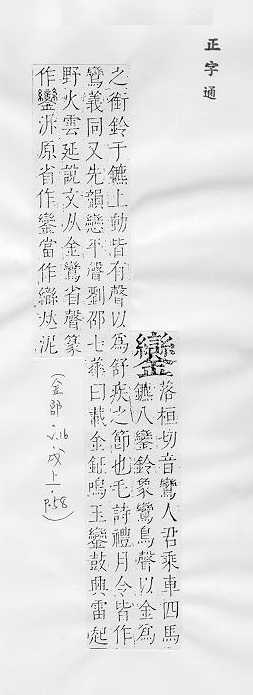 正字通
鑾
落桓切音鸞人君乘車四馬
鑣八鑾鈴象鸞鳥聲以金爲
之銜鈴于鑣上動皆有聲以爲舒疾之節也毛詩禮月令皆作
鸞義同又先韻戀平聲劉邵七華曰載金鉦鳴玉鑾鼓興雷起
野火雲延說文从金鸞省聲篆
作鑾泝原省作鑾當作䜌𠀤泥
(金部 v.16 戌上 p.58)